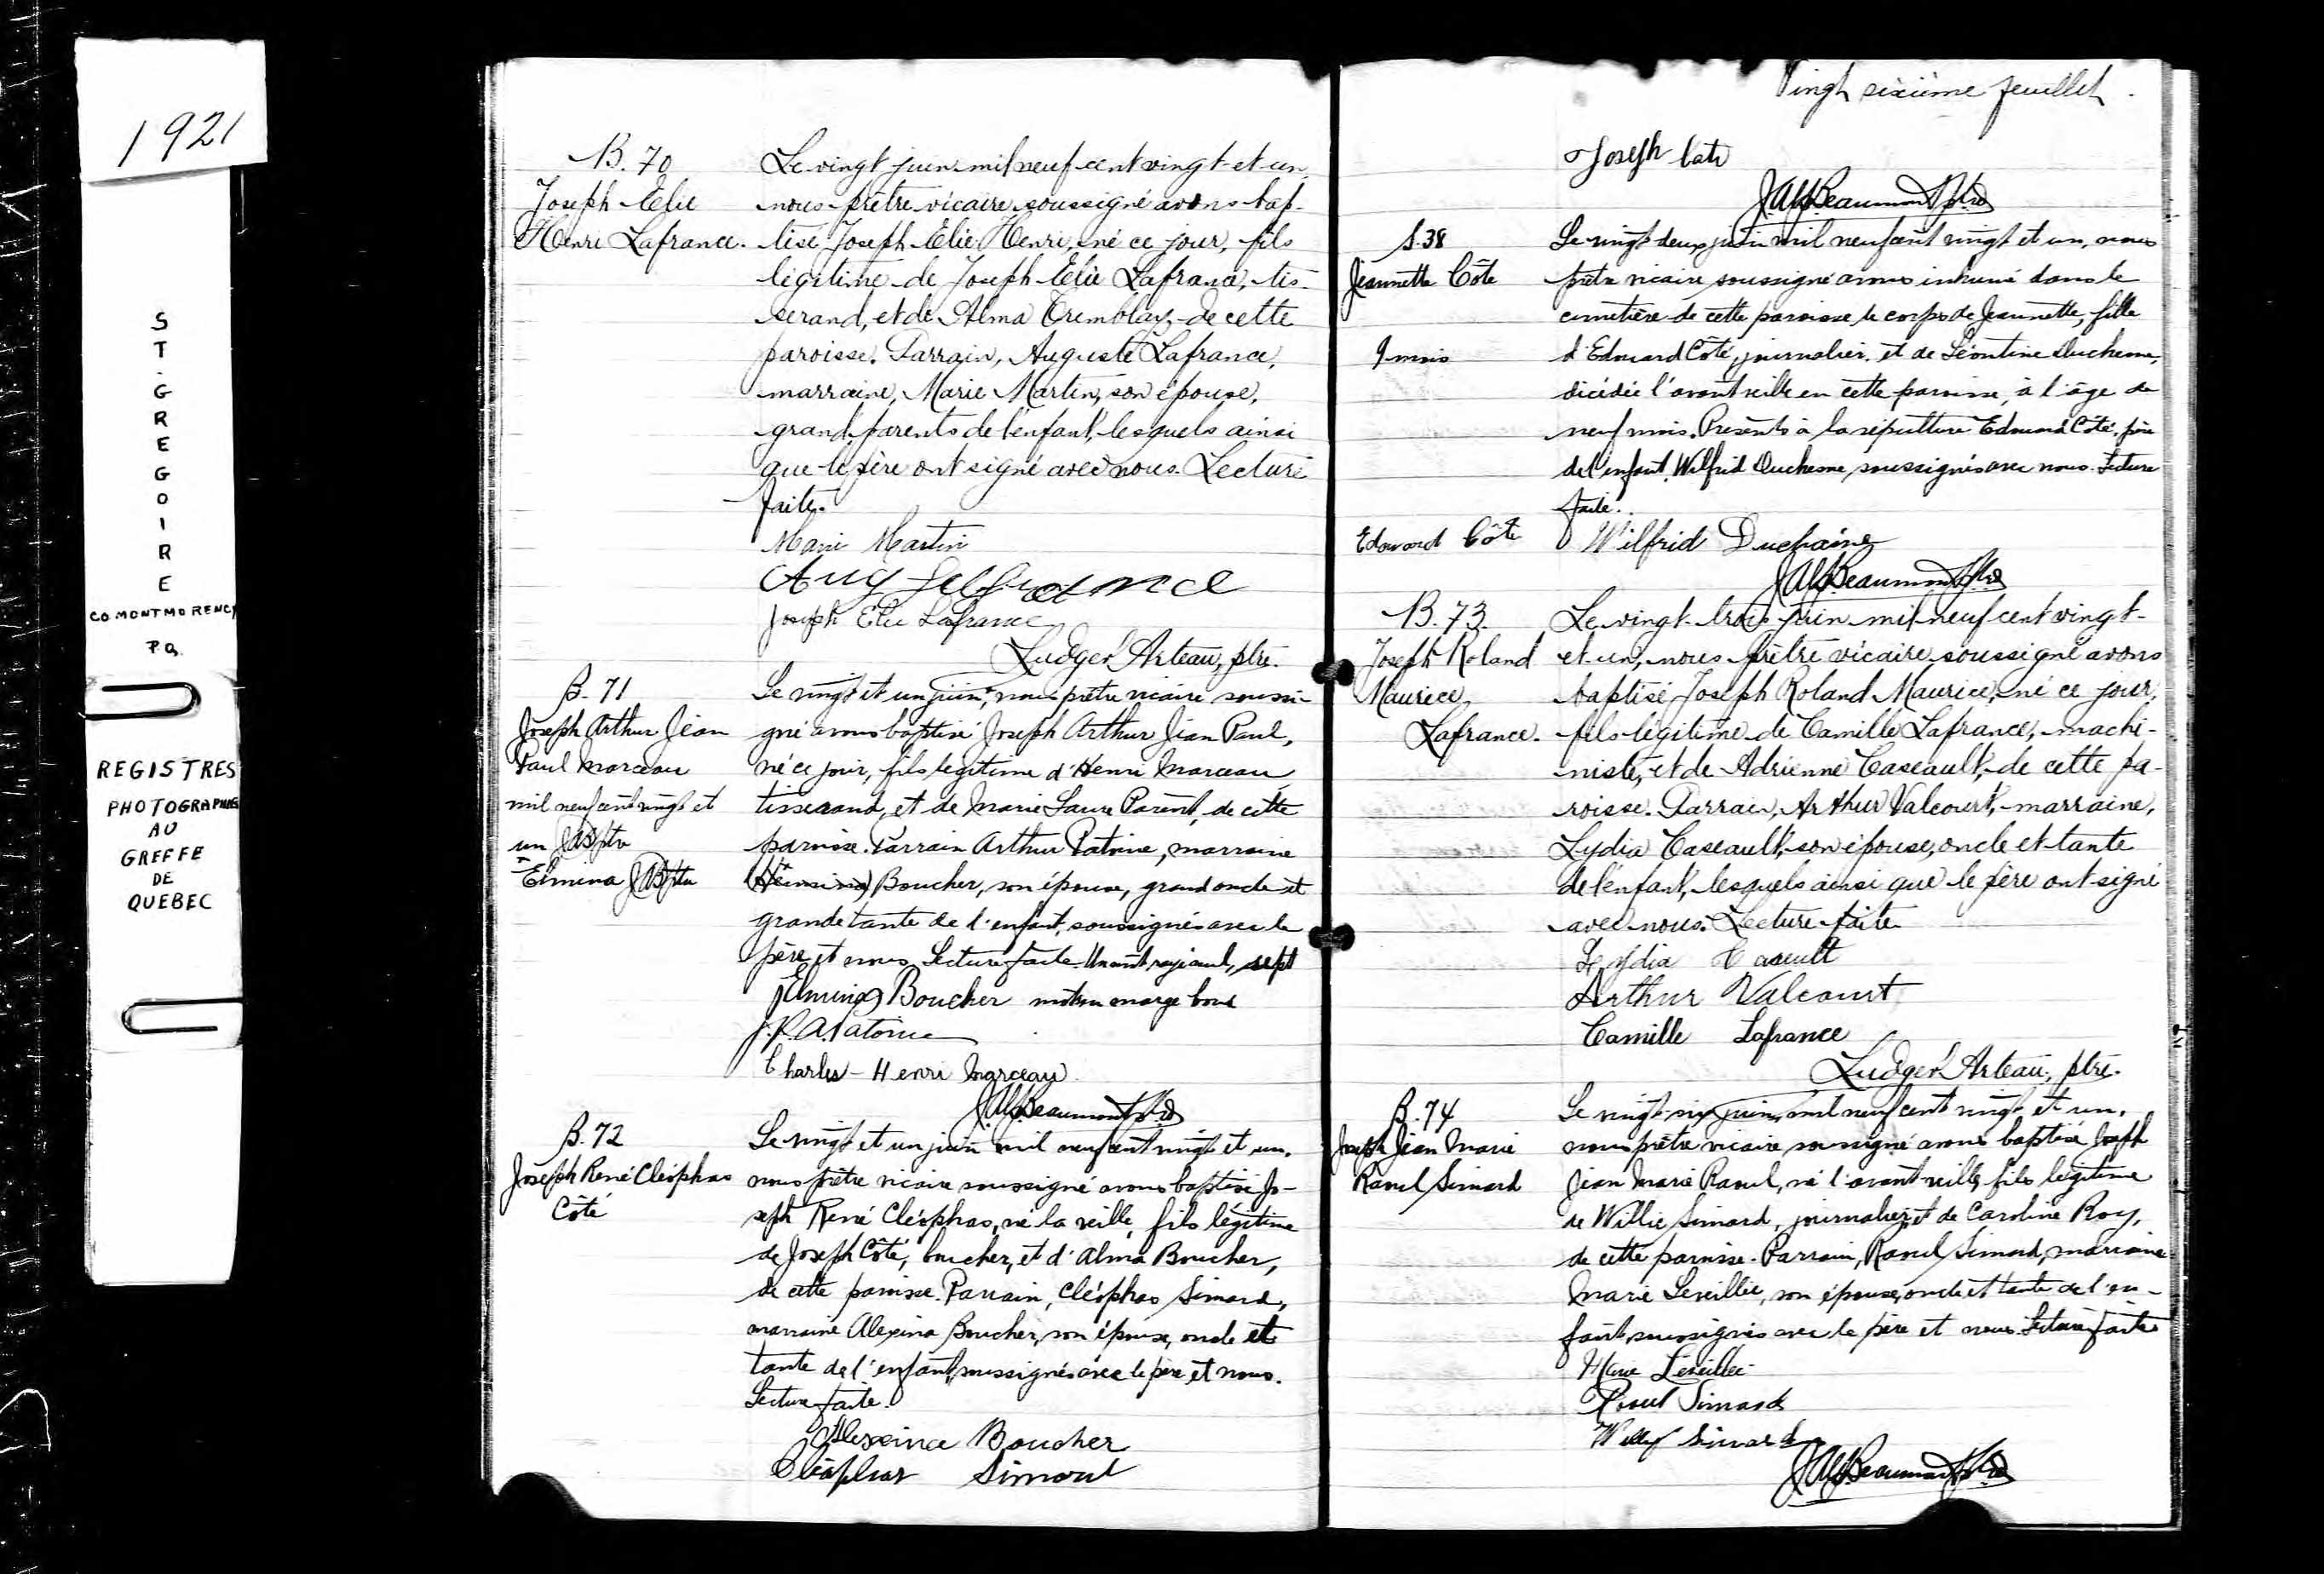 1921
ST. GREGOIRE
CO MONTMORENCY
P.Q.
REGISTRES
PHOTOGRAPHIES
AU
GREFFE
DE
QUEBEC
B. 70
Joseph Elie
Henri Lafrance.
Le vingt juin mil neuf cent vingt-et-un,
nous prêtre vicaire soussigné avons bap-
tisé Joseph Elie Henri, né ce jour, fils
légitime de Joseph Elie Lafrance, tis-
serand, et de Alma Tremblay, de cette
paroisse. Parrain, Auguste Lafrance,
marraine, Marie Martin, son épouse,
grand parents de l'enfant, lesquels ainsi
que le père ont signé avec nous. Lecture
faite.
Marie Martin
Aug Lafrance
Joseph Elie Lafrance
Ludger Arteau, ptre.
B. 71
Joseph Arthur Jean
Paul Marceau
mil neuf cent vingt et
un JAB ptre
Elmina JAB ptre
Le vingt et un juin, nous prêtre vicaire soussi-
gné avons baptisé Joseph Arthur Jean Paul,
né ce jour, fils légitime d'Henri Marceau
tisserand, et de Marie Laure Parent, de cette
paroisse. Parrain Arthur Patoine, marraine
Boucher, son épouse, grand oncle et
grande tante de l'enfant, soussignés avec le
père et nous. Lecture faite. Un mot rayé nul, sept
Elmina Boucher mots en marge bons
J.P.A. Patoine
Charles-Henri Marceau
J.Alf Beaumont Ptre
B. 72
Joseph René Cléophas
Côté
Le vingt et un juin mil neuf cent vingt et un,
nous prêtre vicaire soussigné avons baptisé Jo-
seph René Cléophas, né la veille, fils légitime
de Joseph Côté, boucher, et d'Alma Boucher,
de cette paroisse. Parrain, Cléophas Simard,
marraine Alexina Boucher, son épouse, oncle et
tante de l'enfant, soussignés avec le père et nous.
Lecture faite.
Alexina Boucher
Cléophas Simard
Vingt sixième feuillet.
Joseph Coté
J.Alf Beaumont Ptre
S. 38
Jeannette Côté
9 mois
Le vingt deux juin mil neuf cent vingt et un, nous
prêtre vicaire soussigné avons inhumé dans le
cimetière de cette paroisse le corps de Jeannette, fille
d'Edouard Côté, journalier, et de Léontine Duchesne,
décédée l'avant veille en cette paroisse, à l'âge de
neuf mois. Présents à la sépulture Edouard Côté, père
de l'enfant, Wilfrid Duchesne, soussignés avec nous. Lecture
faite.
Edouard Côté Wilfrid Duchaine
J.Alf Beaumont Ptre
B. 73.
Joseph Roland
Maurice
Lafrance.
Le vingt-trois juin mil neuf cent vingt-
et-un, nous prêtre vicaire soussigné avons
baptisé Joseph Roland Maurice, né ce jour,
fils légitime de Camille Lafrance, machi-
niste, et de Adrienne Caseault, de cette pa-
roisse. Parrain, Arthur Valcourt, marraine,
Lydia Caseault, son épouse, oncle et tante
de l'enfant, lesquels ainsi que le père ont signé
avec nous. Lecture faite.
Lydia Caseult
Arthur Valcourt
Camille Lafrance
Ludger Arteau, ptre.
B. 74
Joseph Jean Marie
Raoul Simard
Le vingt-six juin, mil neuf cent vingt et un,
nous prêtre vicaire soussigné avons baptisé Joseph
Jean Marie Raoul, né l'avant veille, fils légitime
de Willie Simard, journalier, et de Caroline Roy,
de cette paroisse. Parrain, Raoul Simard, marraine
Marie Leveillée, son épouse, oncle et tante de l'en-
fant, soussignés avec le père et nous. Lecture faite
Marie Leveillée
Raoul Simard
Willy Simard
J.Alf Beaumont Ptre